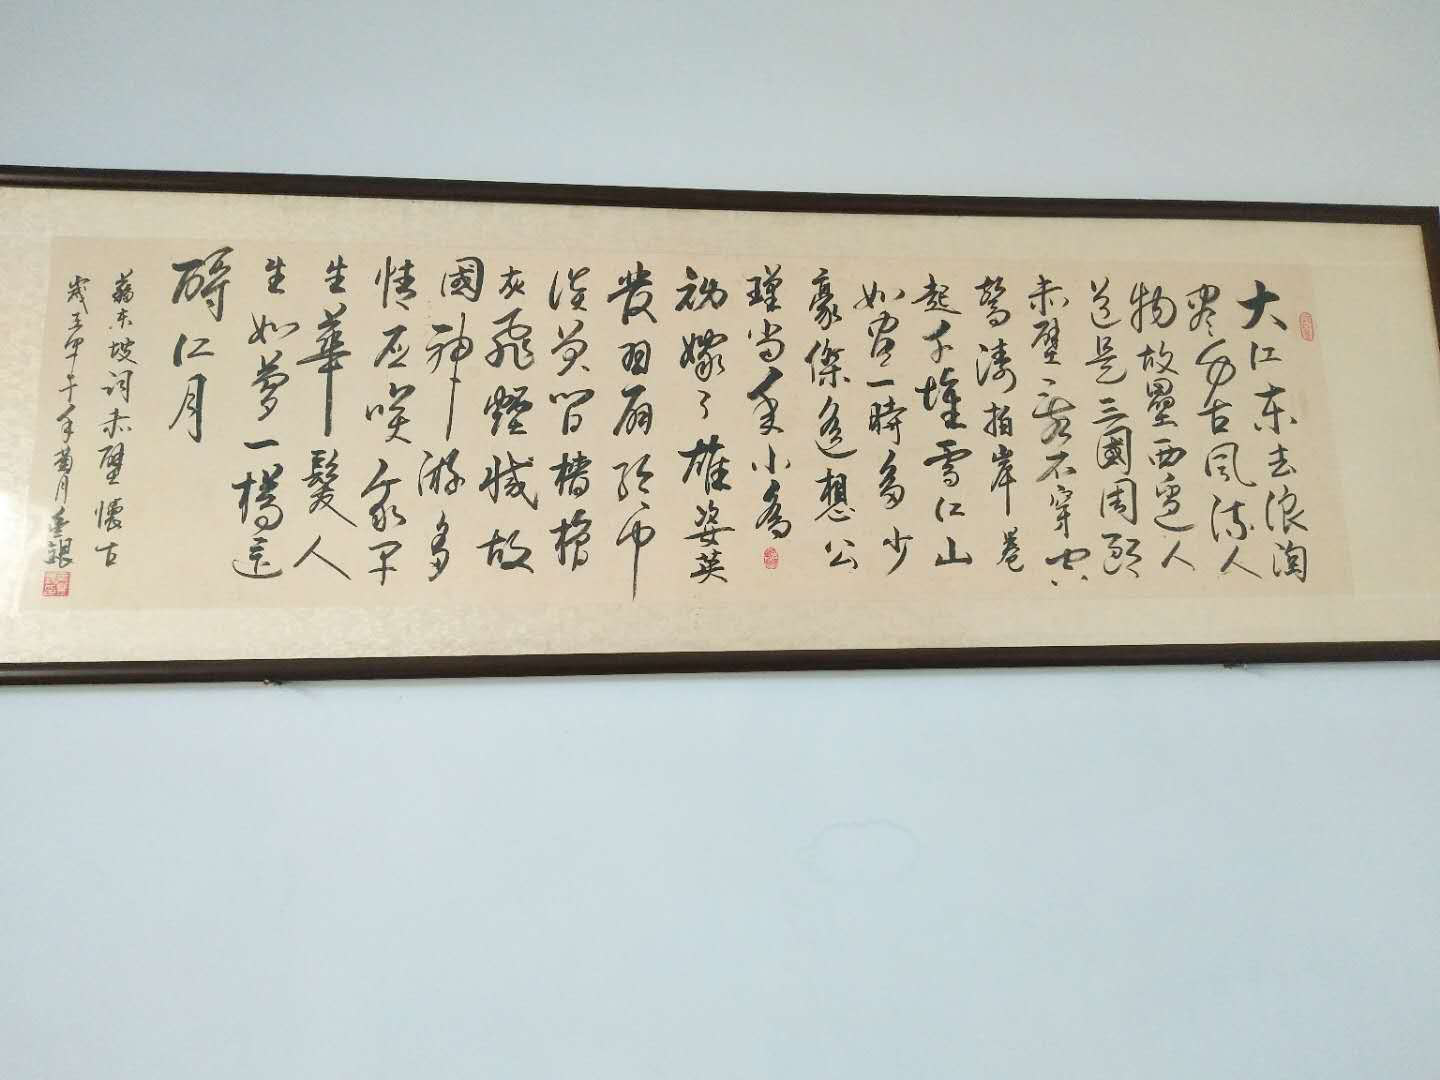 大江东去浪淘
盡万古风流人
物故壘西邊人
道是三國周郎
赤壁乱石穿空
驚涛拍岸卷
起千堆雪江山
如画一時多少
豪傑遥想公
瑾当年小喬
初嫁了雄姿英
發羽扇纶巾
谈笑间檣櫓
灰飛煙滅故
國神游多
情应笑我早
生華髮人
生如夢一樽还
酹江月
蘇东坡词赤壁懷古
歲在甲午年菊月